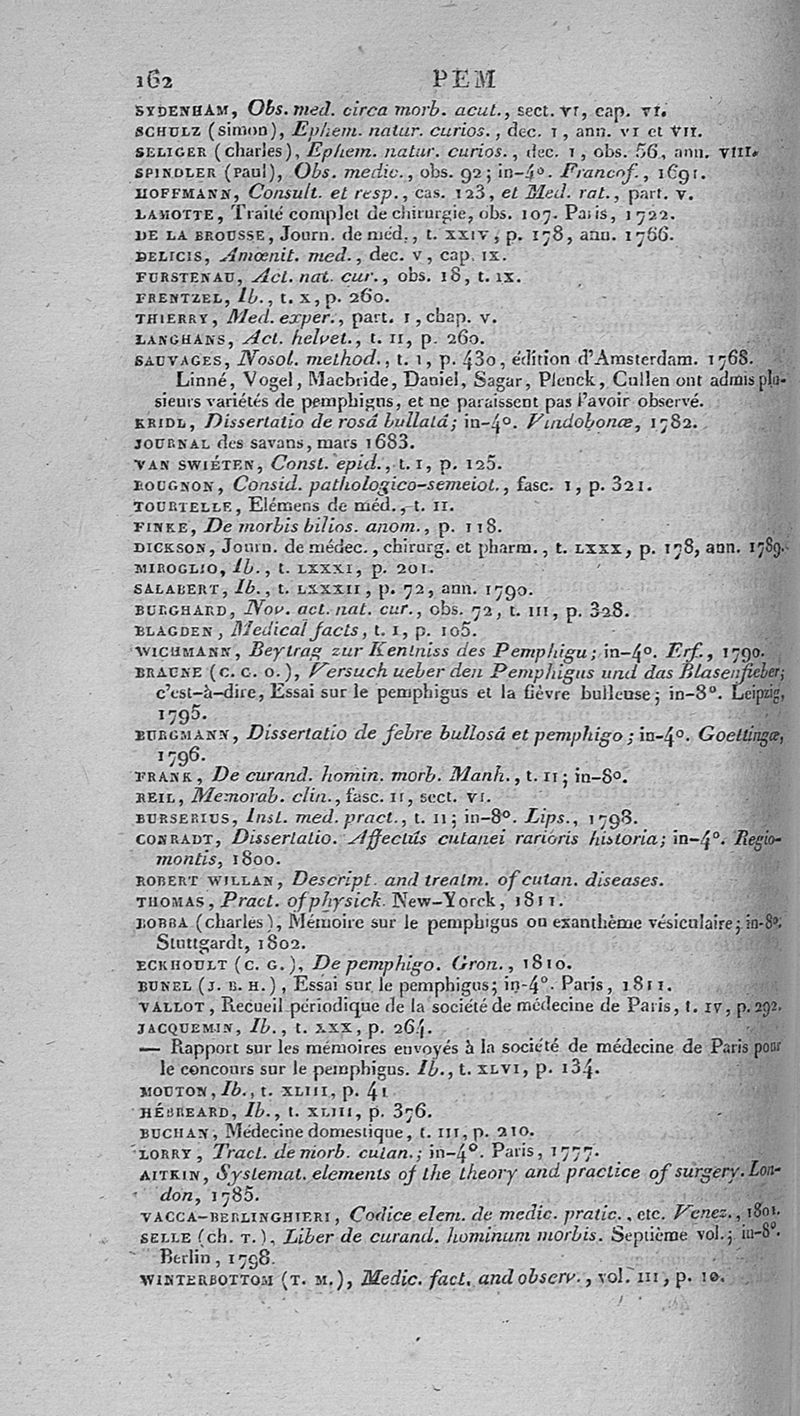 162 PEM
SYDENHAM, Obs. med. circa morb. acut., sect. VI, cap. VI.
SCHULZ (simon), Ephem. natur. curios., dec. I, ann. VI et VII.
SELIGER (charles), Ephem. natur. curios., dec. I, obs. 56, ann. VIII.
SPINDLER (Paul), Obs. medic., obs. 92; in-4°. Francof., 1691.
HOFFMANN, Consult. et resp., cas. 123, et Med. rat., part. V.
LAMOTTE, Traité complet de chirurgie, obs. 107. Paris, 1722.
DE LA BROUSSE, Journ. de méd., t. XXIV, p. 178, ann. 1766.
DELICIS, Amœnit. med., dec. V, cap. IX.
FURSTENAU, Act. nat. cur., obs. 18, t. IX.
FRENTZEL, Ib., t. X, p. 260.
THIERRY, Med. exper., part. I, chap. V.
LANGHANS, Act. helvet., t. II, p. 260.
SAUVAGES, Nosol. method., t. I, p. 430, édition d'Amsterdam. 1768.
Linné, Vogel, Macbride, Daniel, Sagar, Plenck, Cullen ont admis plu-
sieurs variétés de pemphigus, et ne paraissent pas l'avoir observé.
KRIDL, Dissertatio de rosâ bullatâ; in-4°. Vindobonæ, 1782.
JOURNAL des savans, mars 1683.
VAN SWIÉTEN, Const. epid., t. I, p. 125.
ROUGNON, Consid. pathologico-semeiot., fasc. I, p. 321.
TOURTELLE, Elémens de méd., t. II.
FINKE, De morbis bilios. anom., p. 118.
DICKSON, Journ. de médec., chirurg. et pharm., t. LXXX, p. 178, ann. 1789.
MIROGLIO, Ib., t. LXXXI, p. 201.
SALABERT, Ib., t. LXXXII, p. 72, ann. 1790.
BURGHARD, Nov. act. nat. cur., obs. 72, t. III, p. 328.
BLAGDEN, Medical facts, t. I, p. 105.
WICHMANN, Beytrag zur Kentniss des Pemphigu; in-4°. Erf., 1790.
BRAUNE (C. C. O.), Versuch ueber den Pemphigus und das Blasenfieber;
c'est-à-dire, Essai sur le pemphigus et la fièvre bulleuse; in-8°. Leipzig,
1795.
BURGMANN, Dissertatio de febre bullosâ et pemphigo; in-4°. Goettingæ,
1796.
FRANK, De curand. homin. morb. Manh., t. II; in-8°.
REIL, Memorab. clin., fasc. II, sect. VI.
BURSERIUS, Inst. med. pract., t. II; in-8°. Lips., 1798.
CONRADT, Dissertatio. Affectûs cutanei rarioris historia; in-4°. Regio-
montis, 1800.
ROBERT WILLAN, Descript. and treatm. of cutan. diseases.
THOMAS, Pract. of physick. New-Yorck, 1811.
BOBBA (charles), Mémoire sur le pemphigus ou exanthème vésiculaire; in-8°.
Stuttgardt, 1802.
ECKHOULT (C. G.), De pemphigo. Gron., 1810.
BUNEL (J. B. H.), Essai sur le pemphigus; in-4°. Paris, 1811.
VALLOT, Recueil périodique de la société de médecine de Paris, t. IV, p. 292.
JACQUEMIN, Ib., t. XXX, p. 264.
— Rapport sur les mémoires envoyés à la société de médecine de Paris pour
le concours sur le pemphigus. Ib., t. XLVI, p. 134.
MOUTON, Ib., t. XLIII, p. 41
HÉBRÉARD, Ib., t. XLIII, p. 376.
BUCHAN, Médecine domestique, t. III, p. 210.
LORRY, Tract. de morb. cutan.; in-4°. Paris, 1777.
AITKIN, Systemat. elements of the theory and practice of surgery. Lon-
don, 1785.
VACCA-BERLINGHIERI, Codice elem. de medic. pratic., etc. Venez., 1801.
SELLE (ch. T.), Liber de curand. hominum morbis. Septième vol.; in-8°.
Berlin, 1798.
WINTERBOTTOM (T. M.), Medic. fact. and observ., vol. III, p. 10.